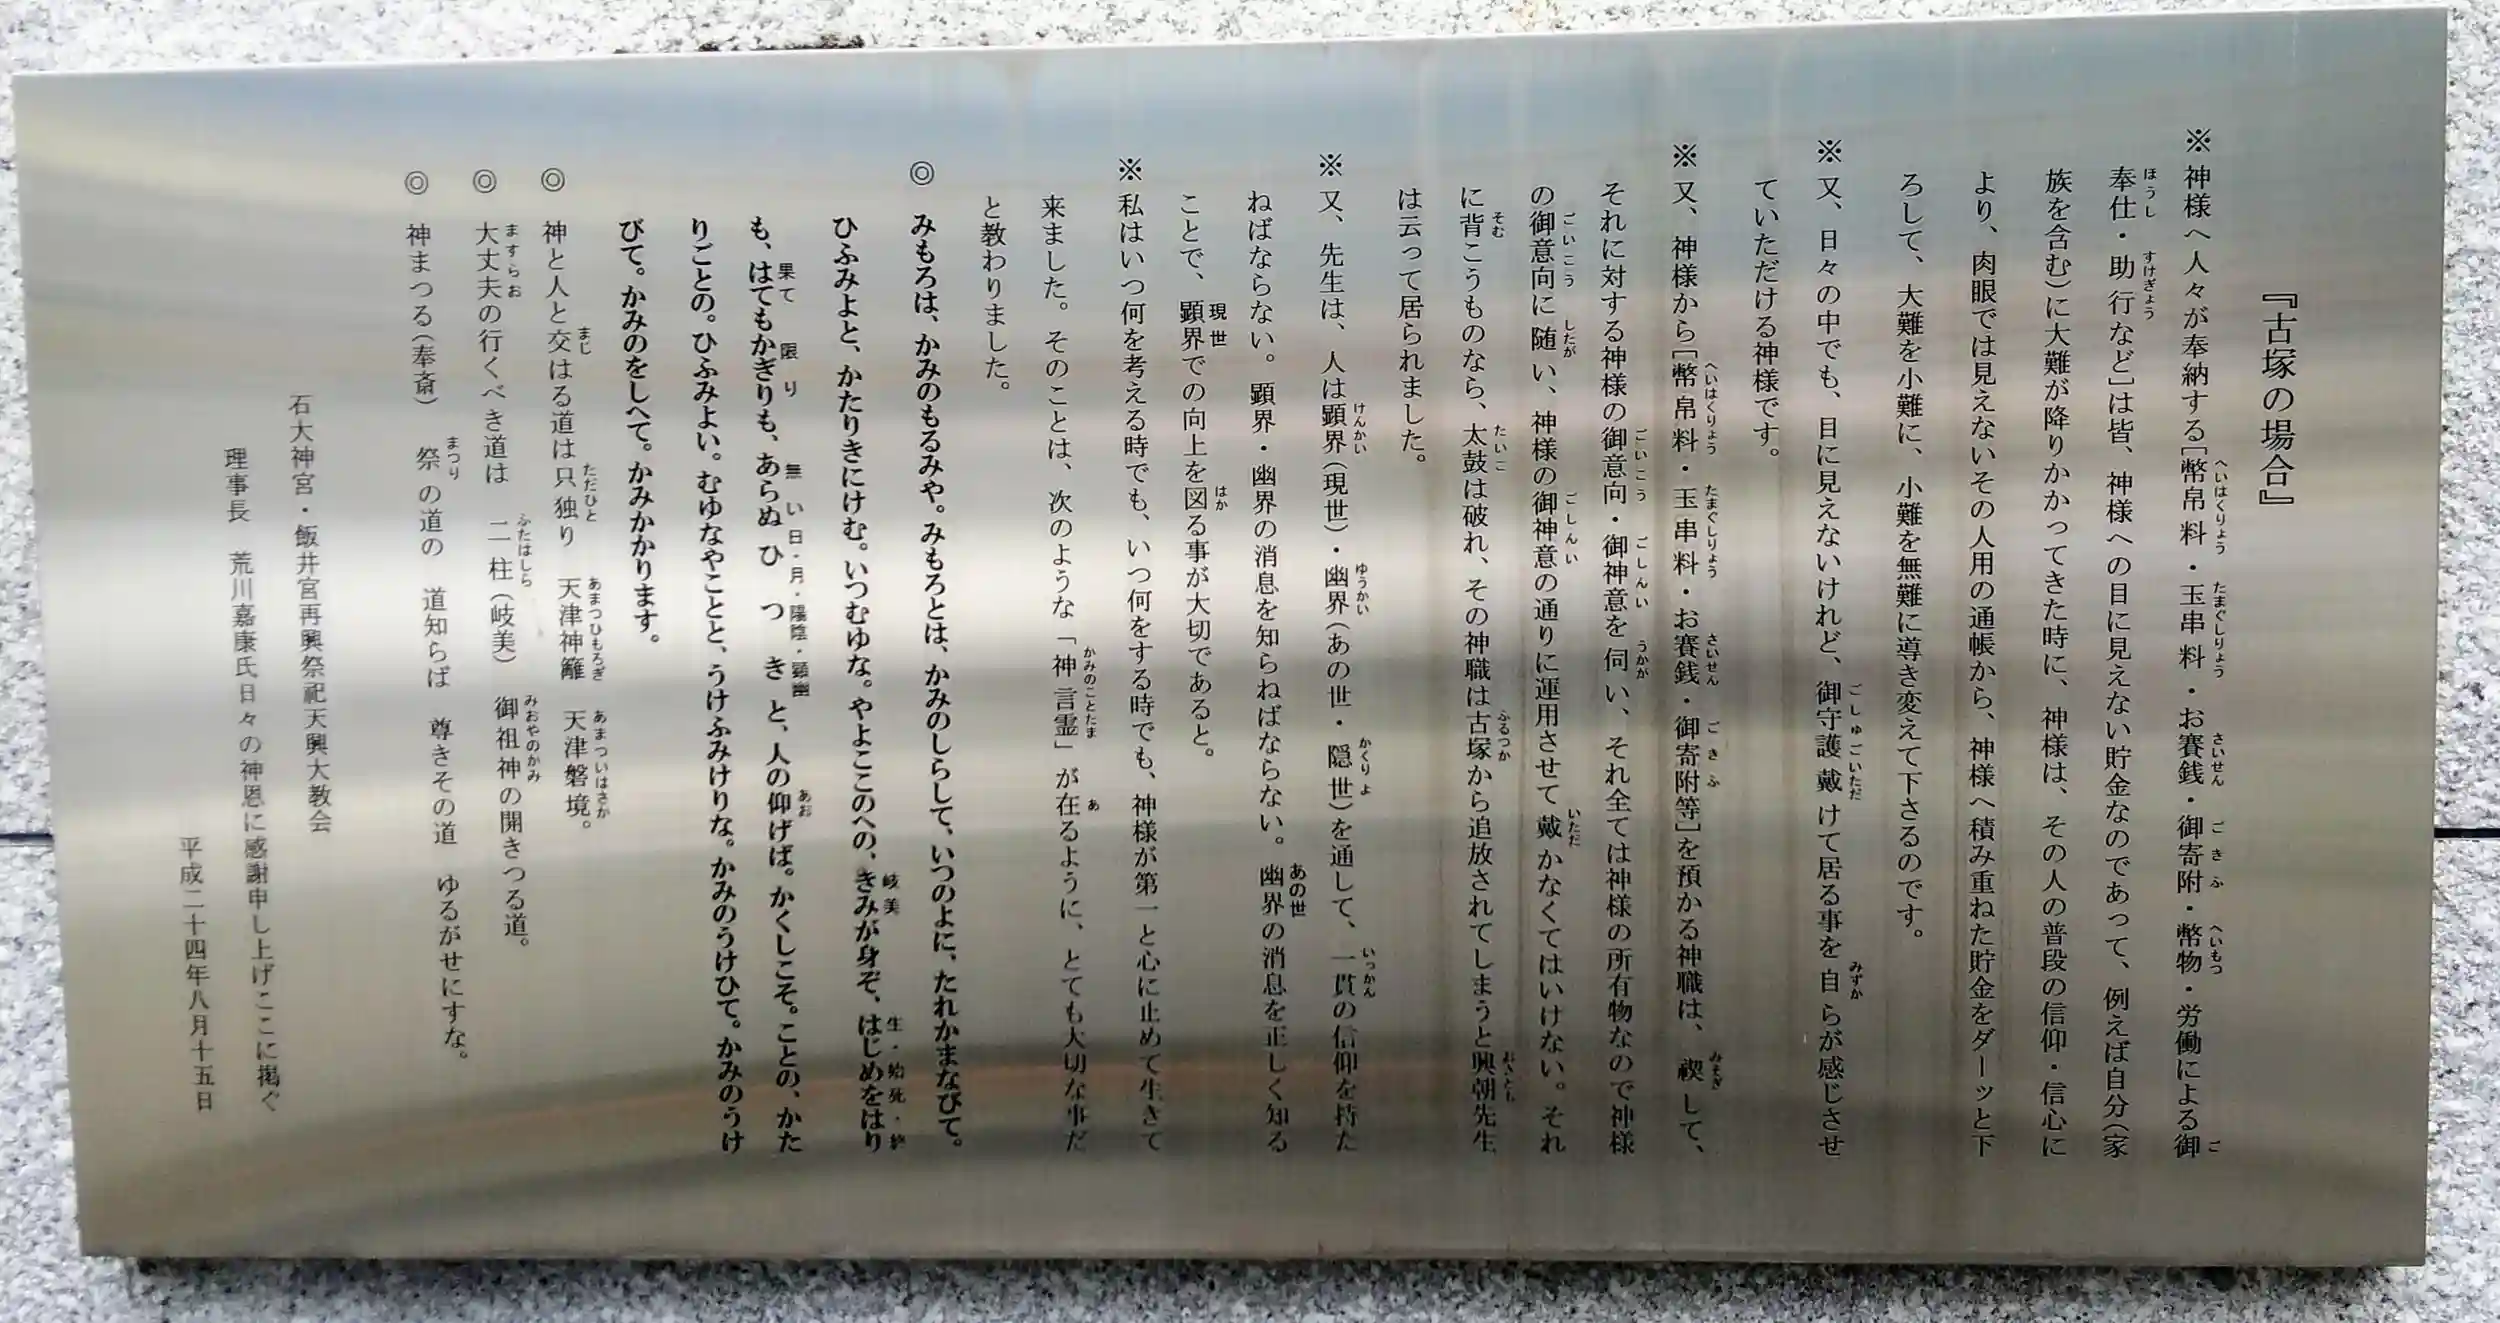 『古塚の場合』
※ 神様へ人々が奉納する［幣帛料・玉串料・お賽銭・御寄附・幣物・労働による御
奉仕・助行など］は皆、神様への目に見えない貯金なのであって、例えば自分（家
族を含む）に大難が降りかかってきた時に、神様は、その人の普段の信仰・信心に
より、肉眼では見えないその人用の通帳から、神様へ積み重ねた貯金をダーッと下
ろして、大難を小難に、小難を無難に導き変えて下さるのです。
※ 又、日々の中でも、目に見えないけれど、御守護戴けて居る事を自らが感じさせ
ていただける神様です。
※ 又、神様から［幣帛料・玉串料・お賽銭・御寄附等］を預かる神職は、禊して、
それに対する神様の御意向・御神意を伺い、それ全ては神様の所有物なので神様
の御意向に随い、神様の御神意の通りに運用させて戴かなくてはいけない。それ
に背こうものなら、太鼓は破れ、その神職は古塚から追放されてしまうと興朝先生
は云って居られました。
※ 又、先生は、人は顕界（現世）・幽界（あの世・隠世）を通して、一貫の信仰を持た
ねばならない。顕界・幽界の消息を知らねばならない。幽界の消息を正しく知る
ことで、顕界での向上を図る事が大切であると。
※ 私はいつ何を考える時でも、いつ何をする時でも、神様が第一と心に止めて生きて
来ました。そのことは、次のような「神言霊」が在るように、とても大切な事だ
と教わりました。
◎ みもろは、かみのもるみや。みもろとは、かみのしらして、いつのよに、たれかまなびて。
ひふみよと、かたりきにけむ。いつむゆな。やよここのへの、きみが身ぞ、はじめをはり
も、はてもかぎりも、あらぬ ひ つ き と、人の仰げば。かくしこそ。ことの、かた
りごとの。ひふみよい。むゆなやことと、うけふみけりな。かみのうけひて。かみのうけ
びて。かみのをしへて。かみかかります。
◎ 神と人と交はる道は只独り 天津神籬 天津磐境。
◎ 大丈夫の行くべき道は 二柱（岐美） 御祖神の開きつる道。
◎ 神まつる（奉斎） 祭の道の 道知らば 尊きその道 ゆるがせにすな。
石大神宮・飯井宮再興祭祀天興大教会
理事長 荒川嘉康氏日々の神恩に感謝申し上げここに掲ぐ
平成二十四年八月十五日